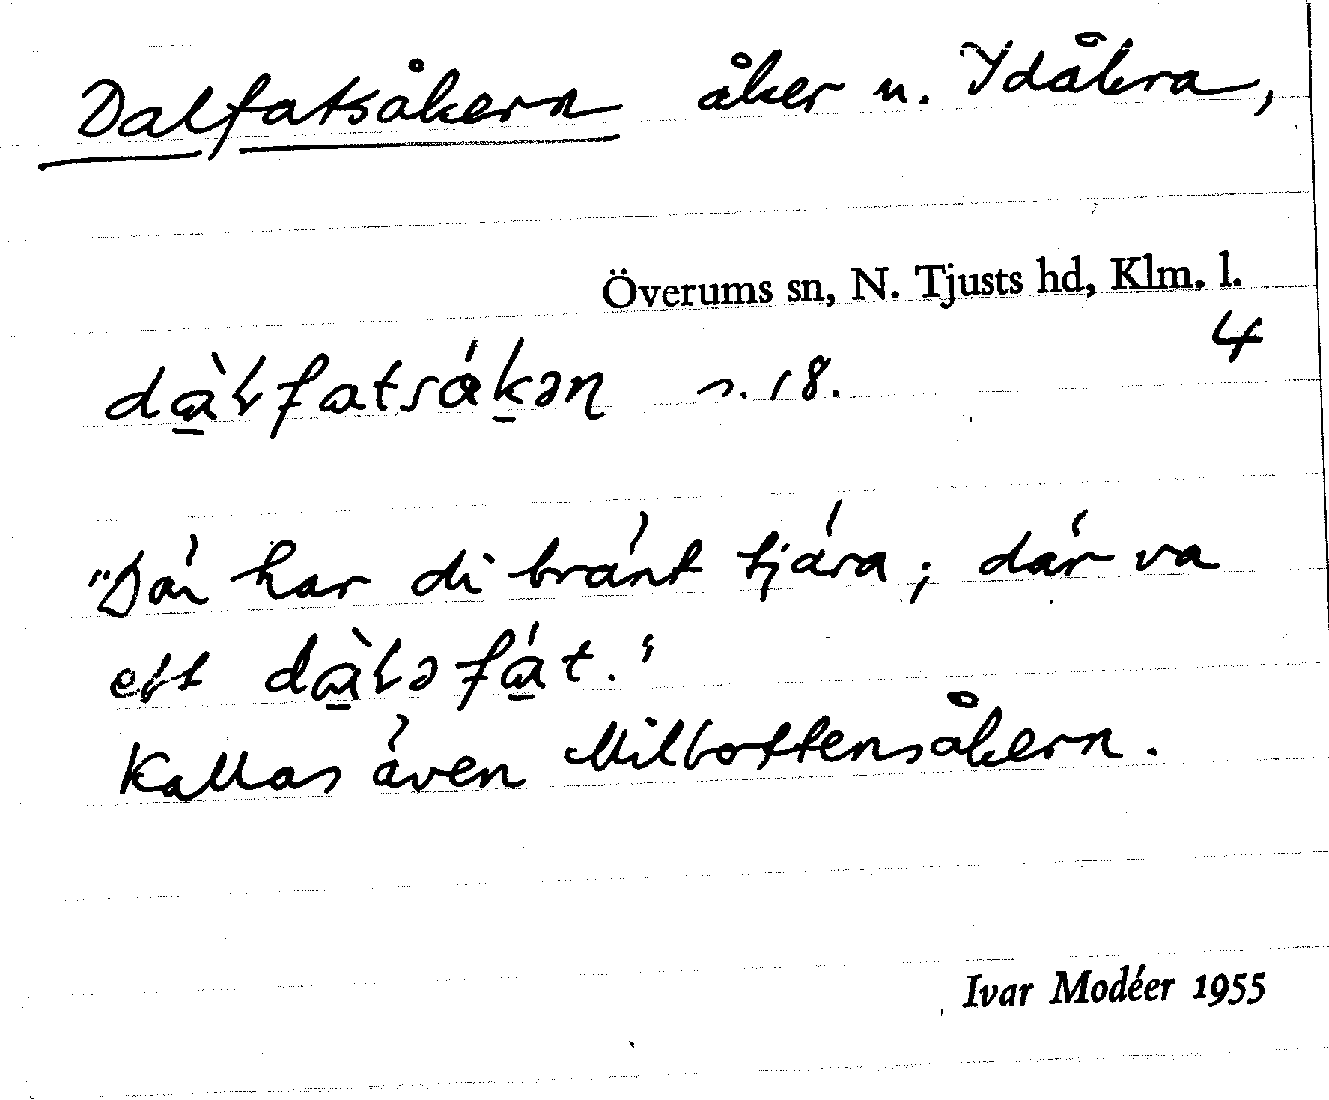 Dalfatsåkern åker u. Ydåkra,
Överums sn, N. Tjusts hd, Klm. l.
4
dàlfatsåkən s. 18.
"Där har di bränt tjära; där va
ett dàləfát."
Kallas även Milbottensåkern.
Ivar Modéer 1955